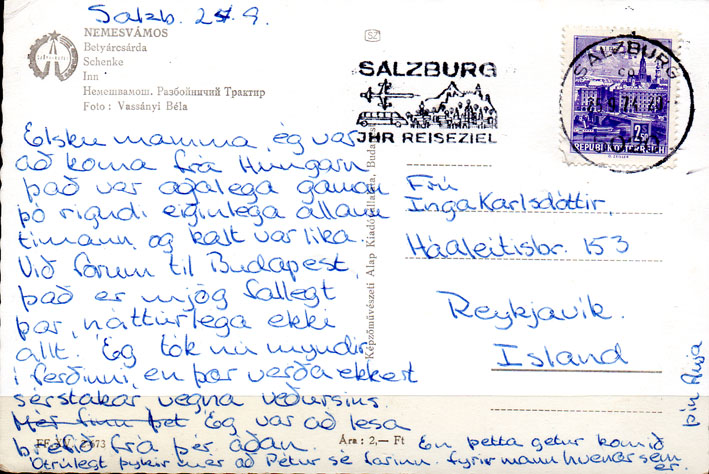 Salzb. 24 9.
NEMESVÁMOS
Betyárcsárda
Schenke
Inn
Немешвамош. Разбойничий Трактир
Foto : Vassányi Béla
SZ
SALZBURG
JHR REISEZIEL
SALZBURG
25.9.74
2S
REPUBLIK ÖSTERREICH
Elsku mamma, ég var
að koma frá Hungarn
það var agalega gaman
þó rigndi eiginlega allann
tímann og kalt var líka.
Við fórum til Budapest,
það er mjög fallegt
þar, náttúrlega ekki
allt. Ég tók nú myndir
í ferðinni, en þær verða ekkert
sérstakar vegna veðursins
Mér finn þet Ég var að lesa
bréfið frá þér áðan. En þetta getur komið
Ótrúlegt þykir mér að Pétur sé farinn. fyrir mann hvenær sem
er.
þín Anja
Frú
Inga Karlsdóttir,
Háaleitisbr. 153
Reykjavík.
Island
Képzőművészeti Alap Kiadóvállalata, Budapest
Ára : 2,— Ft